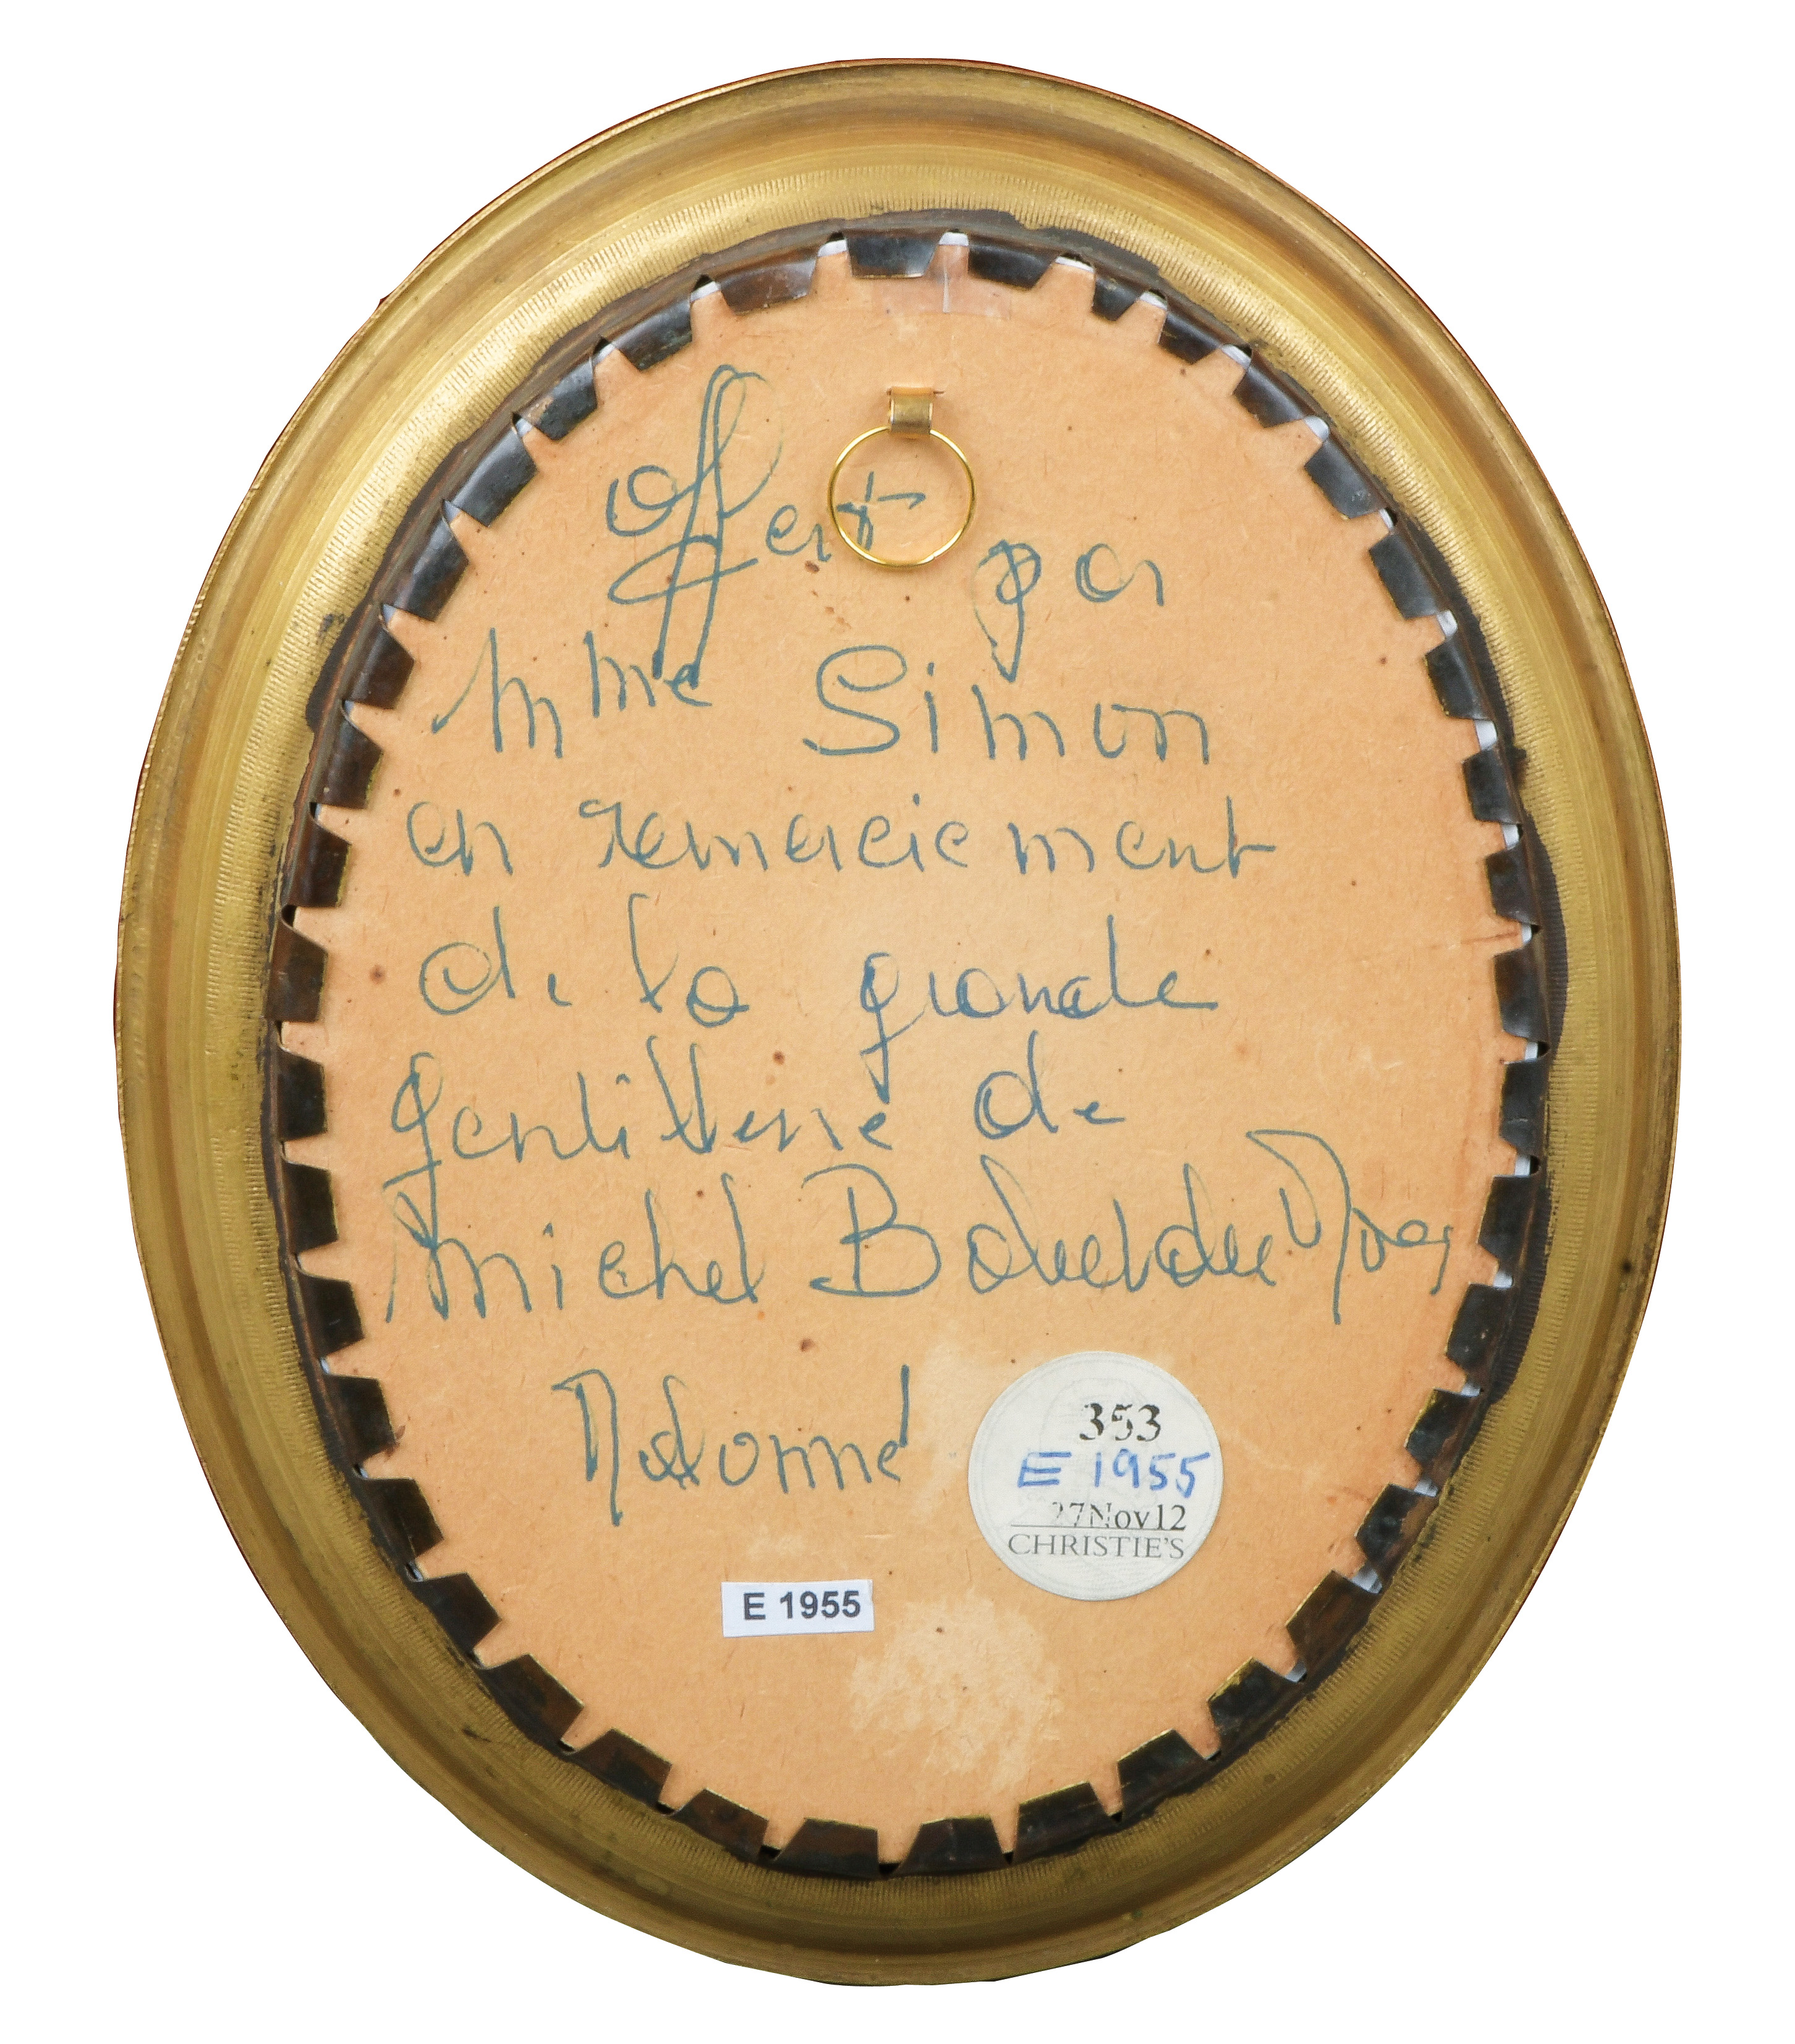 offert par
Mme Simon
en remerciement
de la grande
gentillesse de
Michel
353
E 1955
27Nov12
CHRISTIE'S
E 1955